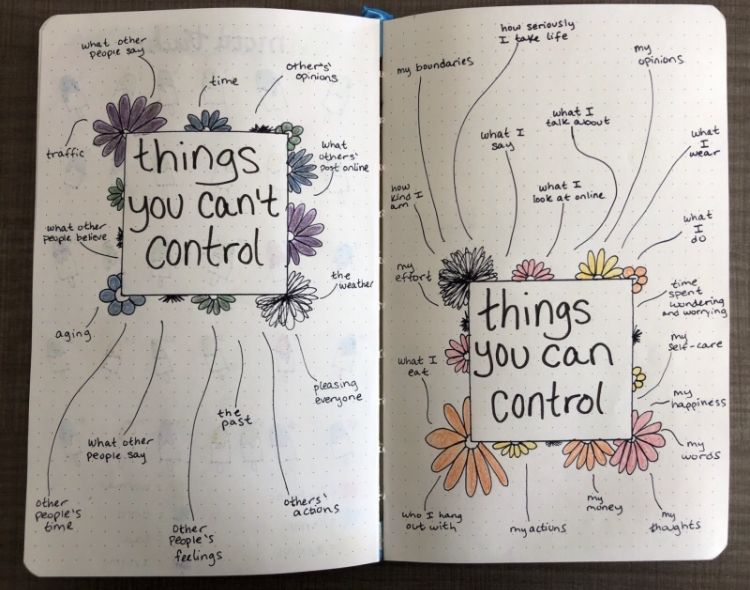 what other
people say
time
others's
opinions
traffic
what
others'
post online
things
you can't
control
what other
people believe
the
weather
aging
pleasing
everyone
the
past
what other
people say
other
people's
time
others'
actions
Other
people's
feelings
how seriously
I take life
my boundaries
my
opinions
what I
talk about
what I
say
what
I
wear
how
kind I
am
what I
look at online
what
I
do
my
effort
time
spent
wondering
and worrying
things
you can
control
my
self-care
what I
eat
my
happiness
my
words
who I hang
out with
my actions
my
money
my
thoughts